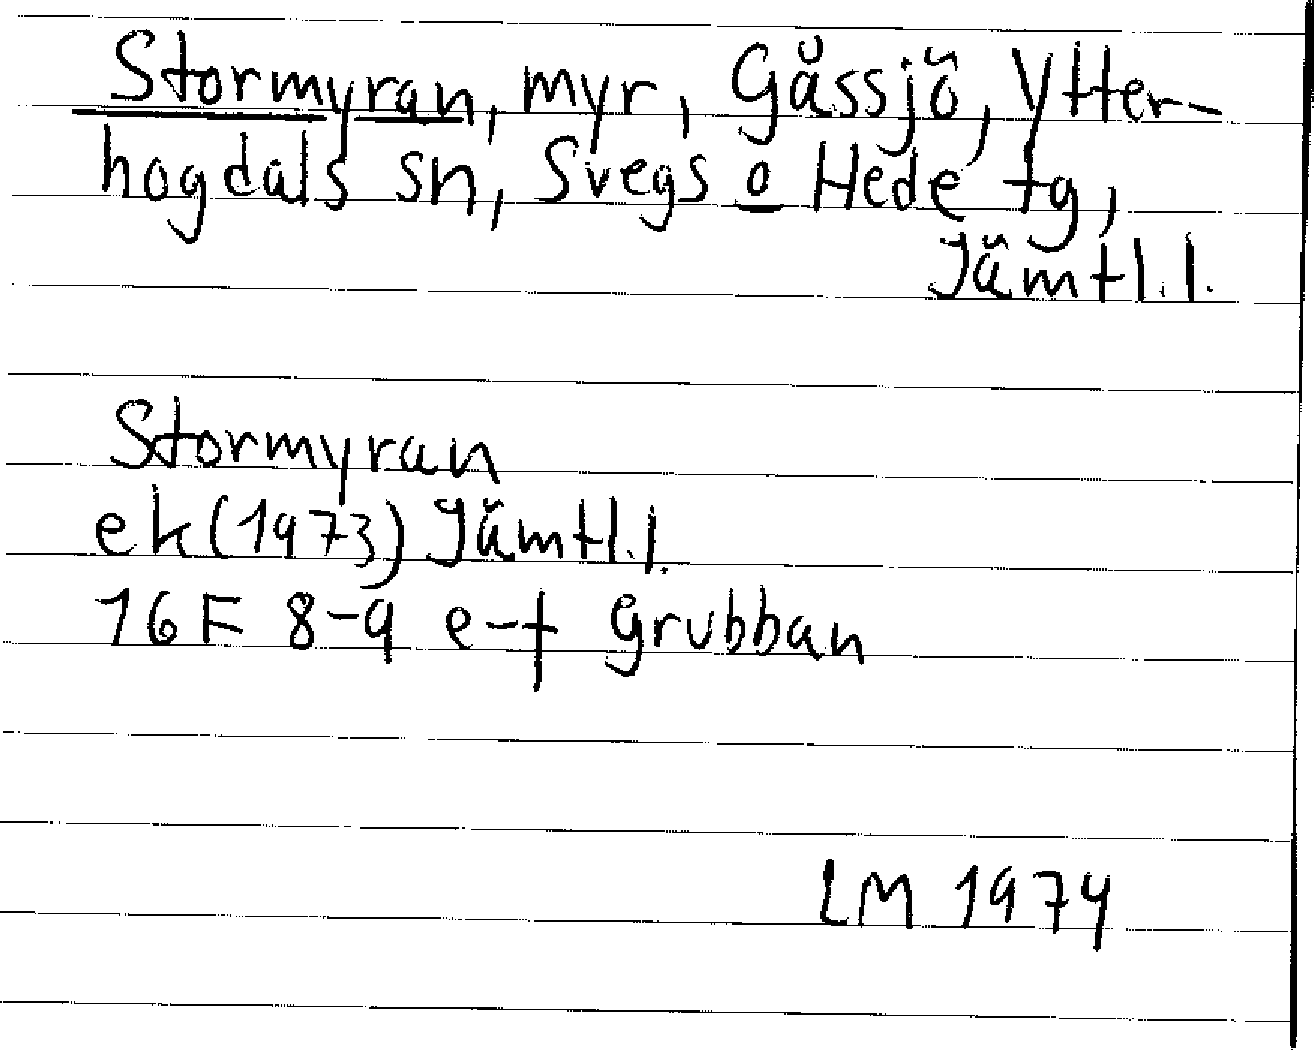 Stormyran, myr, Gåssjö, Ytter-
hogdals sn, Svegs o Hede tg,
Jämtl.l.
Stormyran
ek (1973) Jämtl.l.
16 F 8-9 e-f Grubban
LM 1974